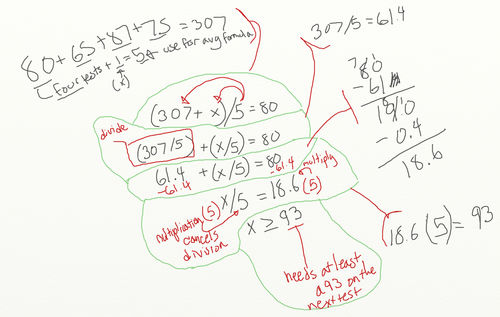 80+65+87+75=307
Four tests + 1 = 5 ← use for avg formula
(x)
307/5=61.4
780
-61
19/10
-0.4
18.6
(307+x)/5=80
divide
(307/5)+(x/5)=80
61.4+(x/5)=80
-61.4 -61.4
multiply
(5)x/5=18.6(5)
multiplication cancels division
x≥93
18.6(5)=93
needs at least
a 93 on the
next test